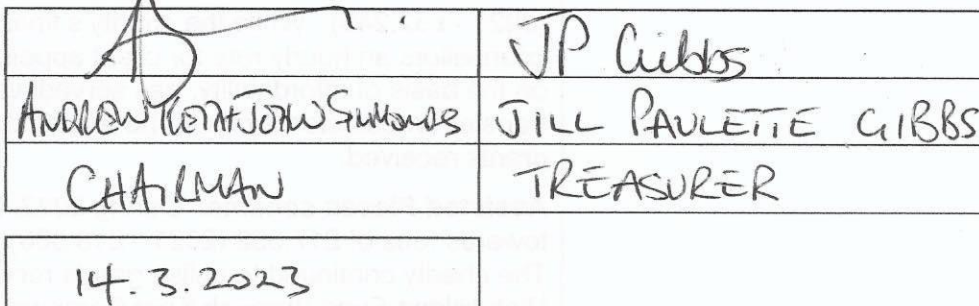 JP Gibbs
ANDREW KEITH JOHN SIMMONDS JILL PAULETTE GIBBS
CHAIRMAN TREASURER
14.3.2023